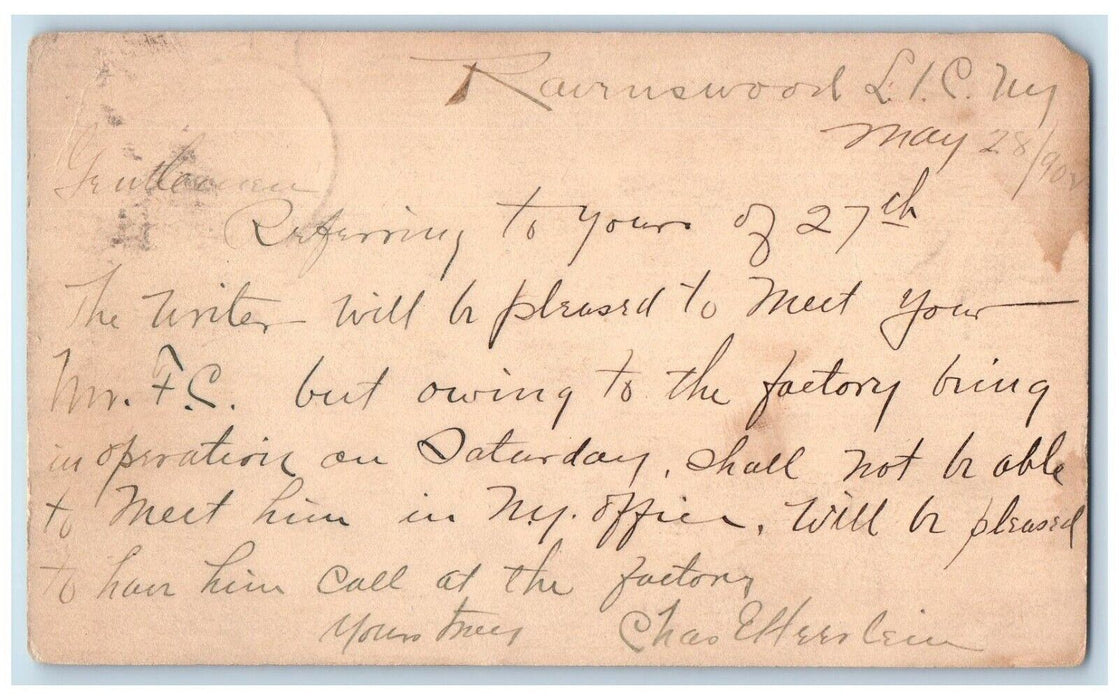 Ravenswood L.I.C. Ny
May 28/902
Gentlemen
Referring to yours of 27th
The writer will be pleased to meet your
Mr. F.C. but owing to the factory being
in operation on Saturday, shall not be able
to meet him in N.Y. office, will be pleased
to have him call at the factory
Yours truly Chas E